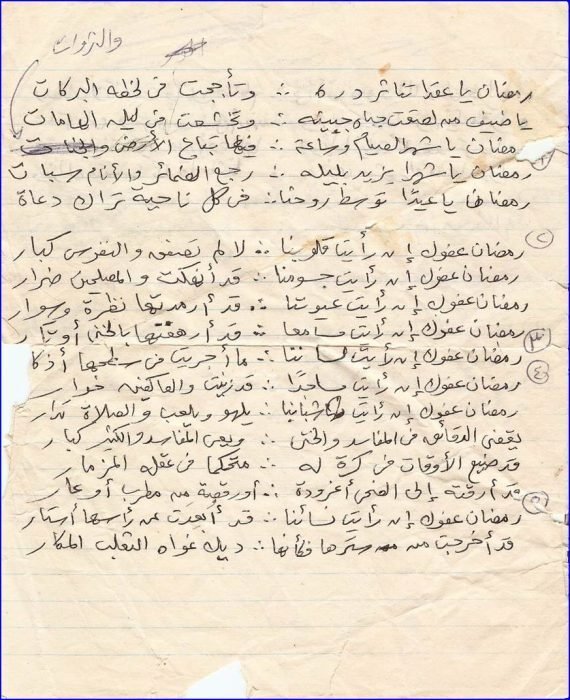 والثروات
رمضان يا عقدا تناثر دره ∴ وتأججت في لحظه البركات
يا ضيف من لصقت جباه جبينه ∴ وتخشعت في ليله الهامات
رمضان يا شهر الصيام وساعة ∴ فيها تباح الأرض
رمضان يا شهرا يزيد بليله ∴ رجع الضمائر والأنام سبات
رمضاننا يا عيدًا توسط روحنا ∴ في كل ناحية تراك دعاة
٢
رمضان عفوك إن رأيت قلوبنا ∴ لا لم تصفق والنفوس كبار
رمضان عفوك إن رأيت جسومنا ∴ قد أنهكت والمصلحين ضرار
رمضان عفوك إن رأيت عيوننا ∴ قد أرمدتها نظرة وسوار
رمضان عفوك إن رأيت مسامعا ∴ قد أرهقتها بالخنى أوتار
٣
رمضان عفوك إن رأيت لساننا ∴ ما أجريت في سطحها أذكا
٤
رمضان عفوك إن رأيت مساجدًا ∴ قد زينت والعاكفين خوار
رمضان عفوك إن رأيت شبابنا ∴ يلهو ويلعب والصلاة تدار
يقضي الدقائق في المفاسد والخنى ∴ ويعي المفاسد والكثير كبار
قد ضيع الأوقات في كرة له ∴ متحكما في عقله المزمار
قد أرقته إلى الضحى أغرودة ∴ أو رقصة من مطرب أو عار
٥
رمضان عفوك إن رأيت نسائنا ∴ قد أبعدت عن رأسها أستار
قد أخرجت من سترها فكأنها ∴ ديك غواه الثعلب المكار